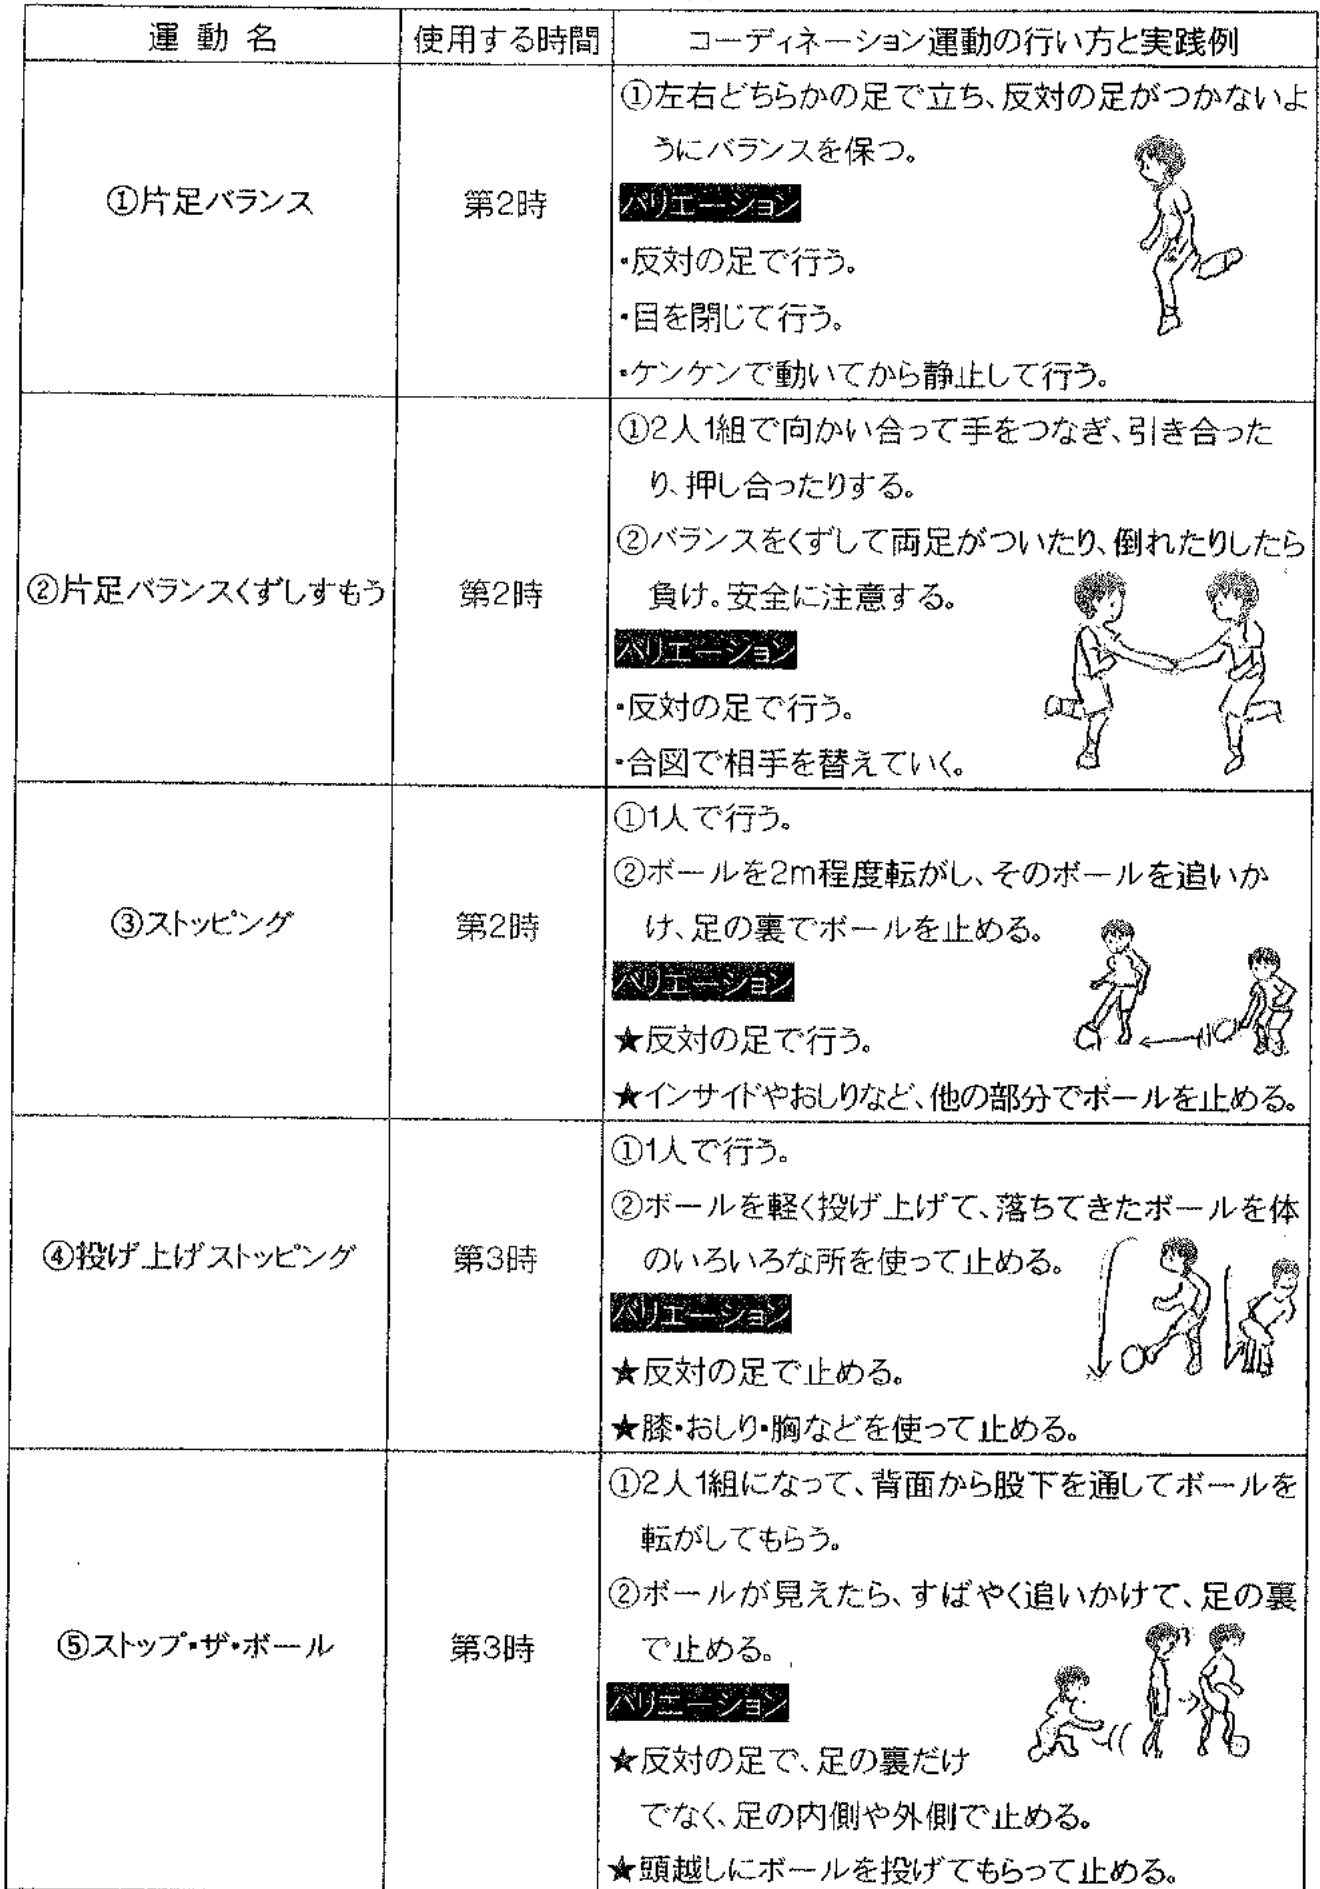 運動名 使用する時間 コーディネーション運動の行い方と実践例
①片足バランス
第2時
①左右どちらかの足で立ち、反対の足がつかないよ
うにバランスを保つ。
バリエーション
・反対の足で行う。
・目を閉じて行う。
・ケンケンで動いてから静止して行う。
②片足バランスくずしすもう
第2時
①2人1組で向かい合って手をつなぎ、引き合った
り、押し合ったりする。
②バランスをくずして両足がついたり、倒れたりしたら
負け。安全に注意する。
バリエーション
・反対の足で行う。
・合図で相手を替えていく。
③ストッピング
第2時
①1人で行う。
②ボールを2m程度転がし、そのボールを追いか
け、足の裏でボールを止める。
バリエーション
★反対の足で行う。
★インサイドやおしりなど、他の部分でボールを止める。
④投げ上げストッピング
第3時
①1人で行う。
②ボールを軽く投げ上げて、落ちてきたボールを体
のいろいろな所を使って止める。
バリエーション
★反対の足で止める。
★膝・おしり・胸などを使って止める。
⑤ストップ・ザ・ボール
第3時
①2人1組になって、背面から股下を通してボールを
転がしてもらう。
②ボールが見えたら、すばやく追いかけて、足の裏
で止める。
バリエーション
★反対の足で、足の裏だけ
でなく、足の内側や外側で止める。
★頭越しにボールを投げてもらって止める。